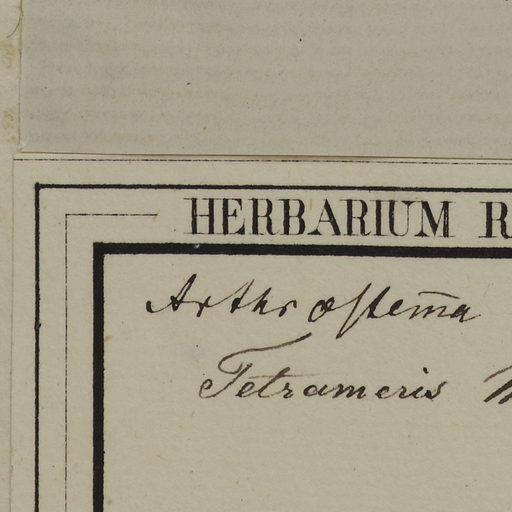 HERBARIUM R
Arthrostem̄a
Tetrameris